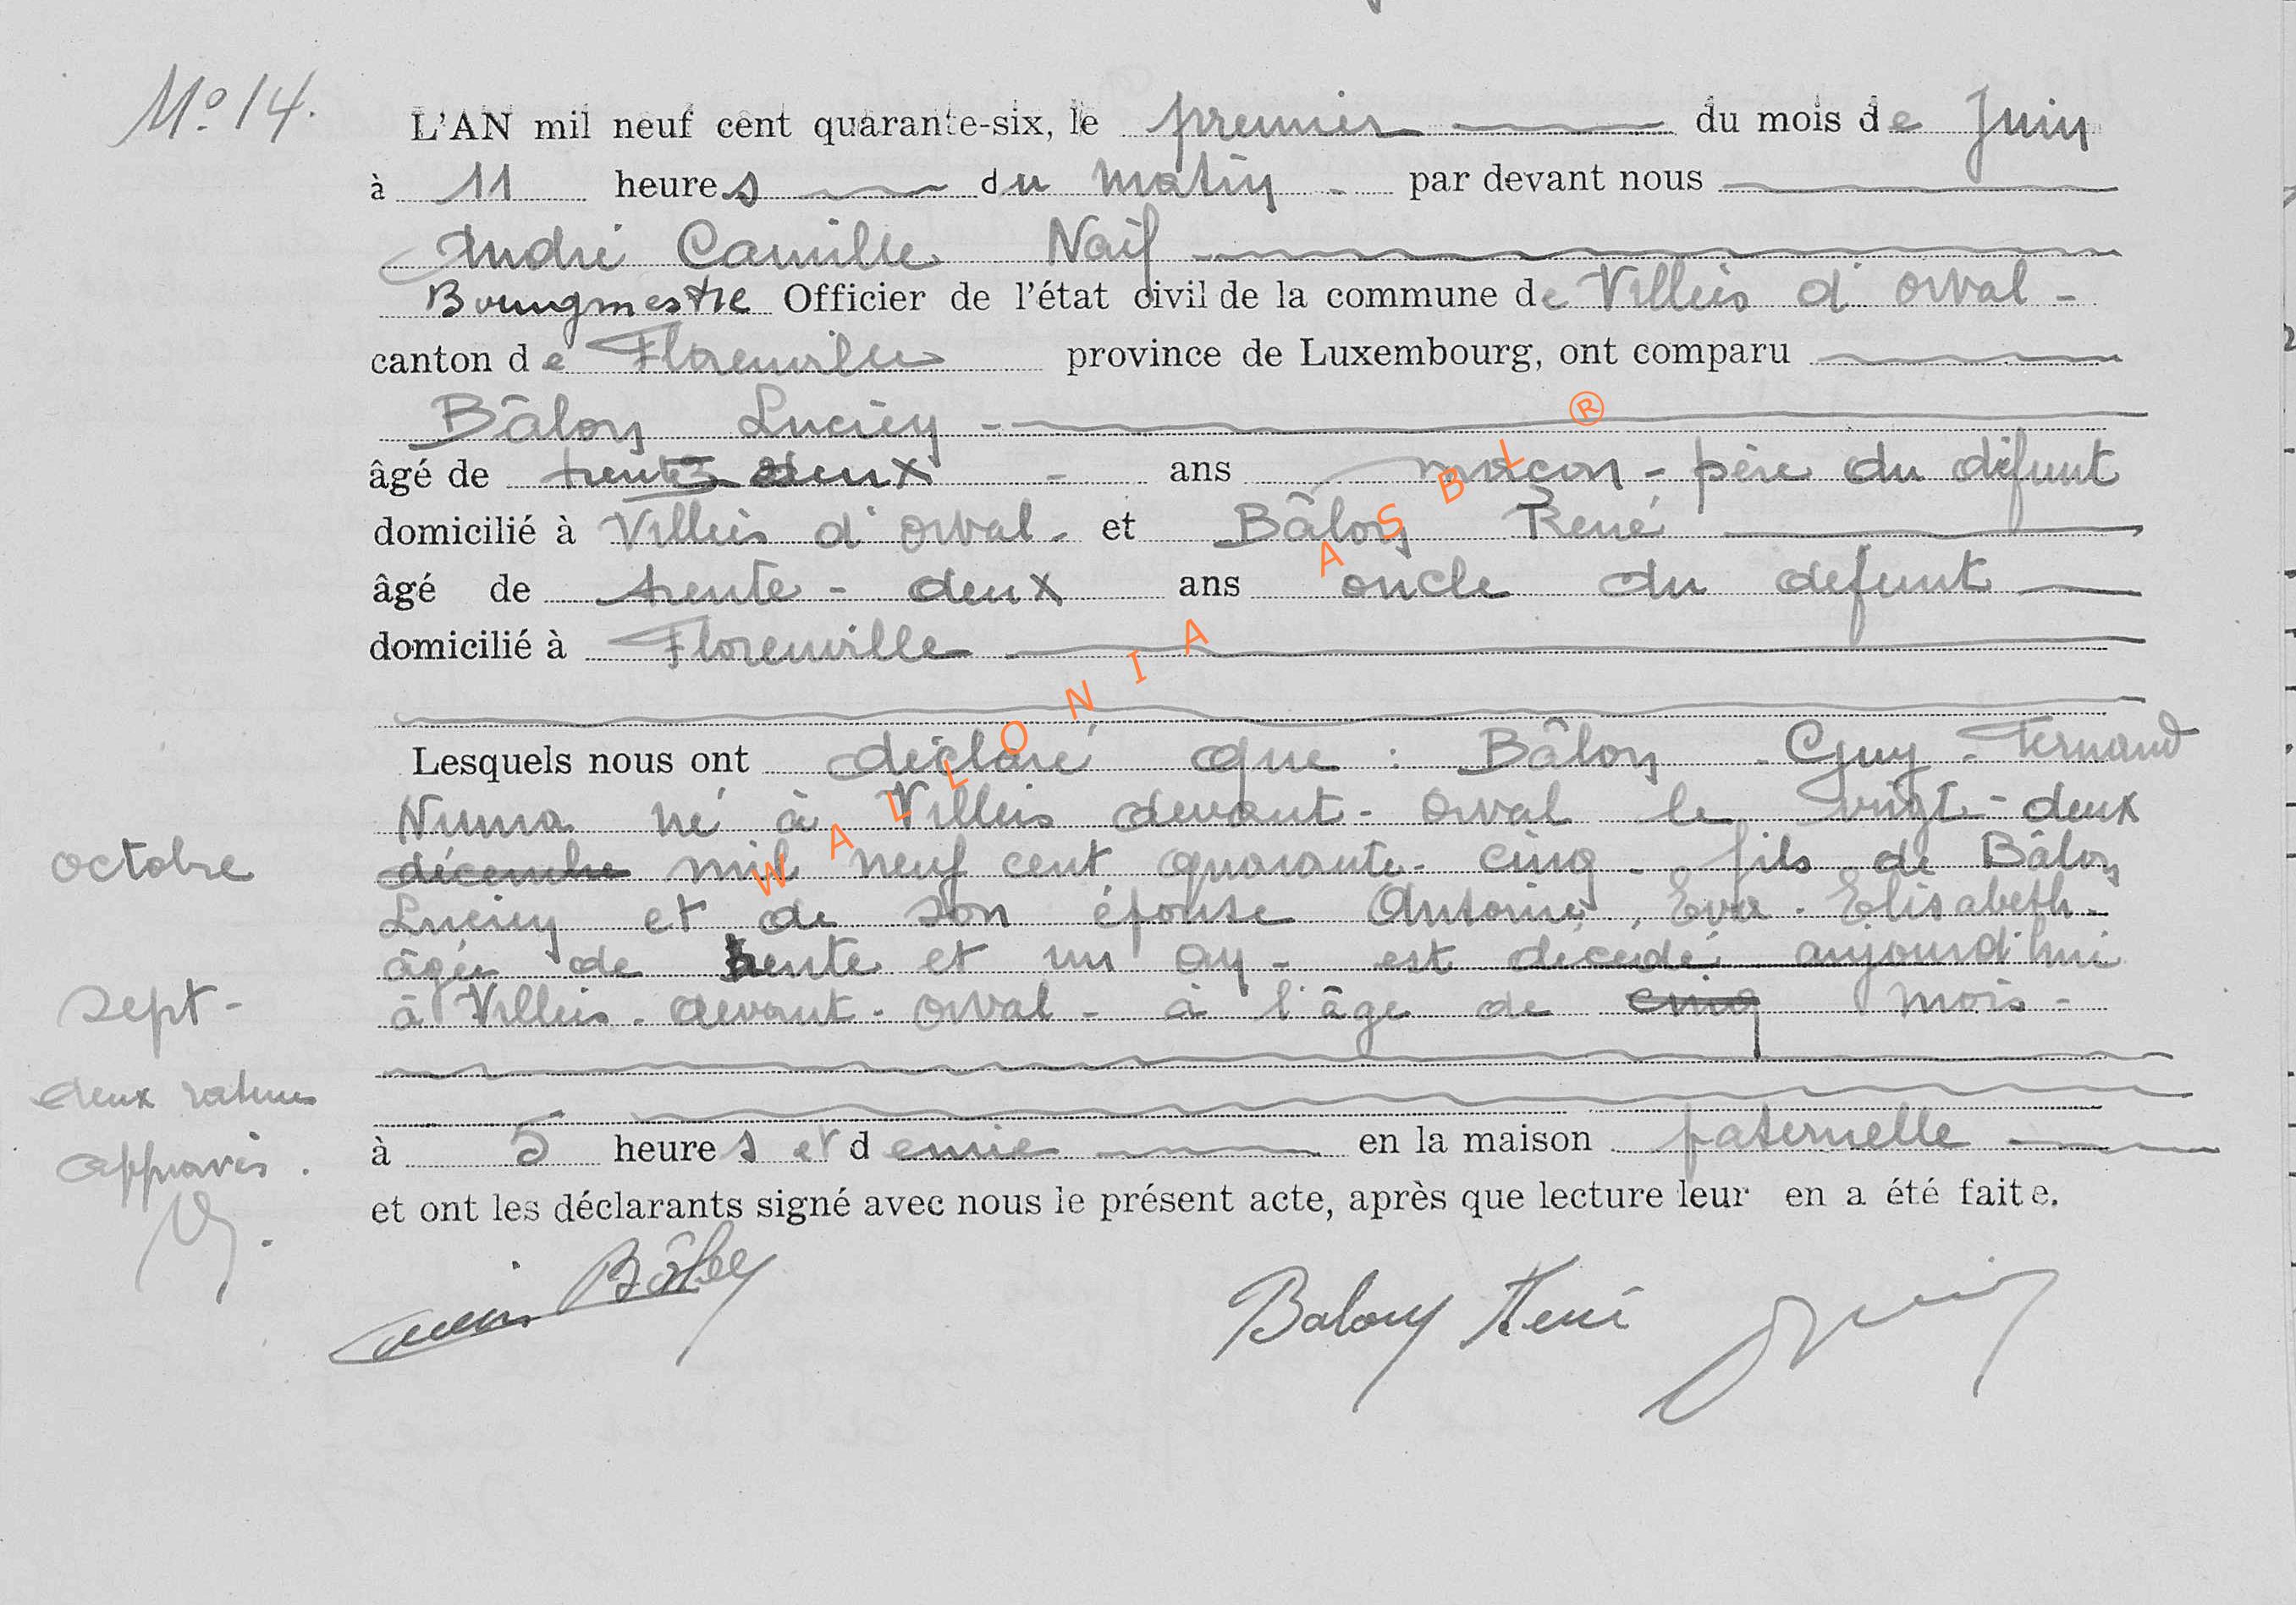 No 14.
L'AN mil neuf cent quarante-six, le premier du mois de Juin
à 11 heures du matin - par devant nous
André Camille Naif
Bourgmestre Officier de l'état civil de la commune de Villers d'orval -
canton de Florenville province de Luxembourg, ont comparu
Bâlon Lucien -
âgé de trente deux - ans maçon - père du défunt
domicilié à Villers d'orval - et Bâlon René
âgé de trente - deux ans oncle du defunt
domicilié à Florenville
Lesquels nous ont déclaré que : Bâlon - Guy - Fernand
Numa né à Villers devant - Orval le vingt - deux
octobre
décembre mil neuf cent quarante - cinq - fils de Bâlon
Lucien et de son épouse Antoine, Eva - Elisabeth -
âgée de trente et un an - est décédé aujourd'hui
sept -
à Villers - devant - orval - à l'âge de cinq mois -
deux ratures
approuvées.
à 5 heures et demie en la maison paternelle
et ont les déclarants signé avec nous le présent acte, après que lecture leur en a été faite.
Bâlon
Balon René
WALLONIA ASBL ®